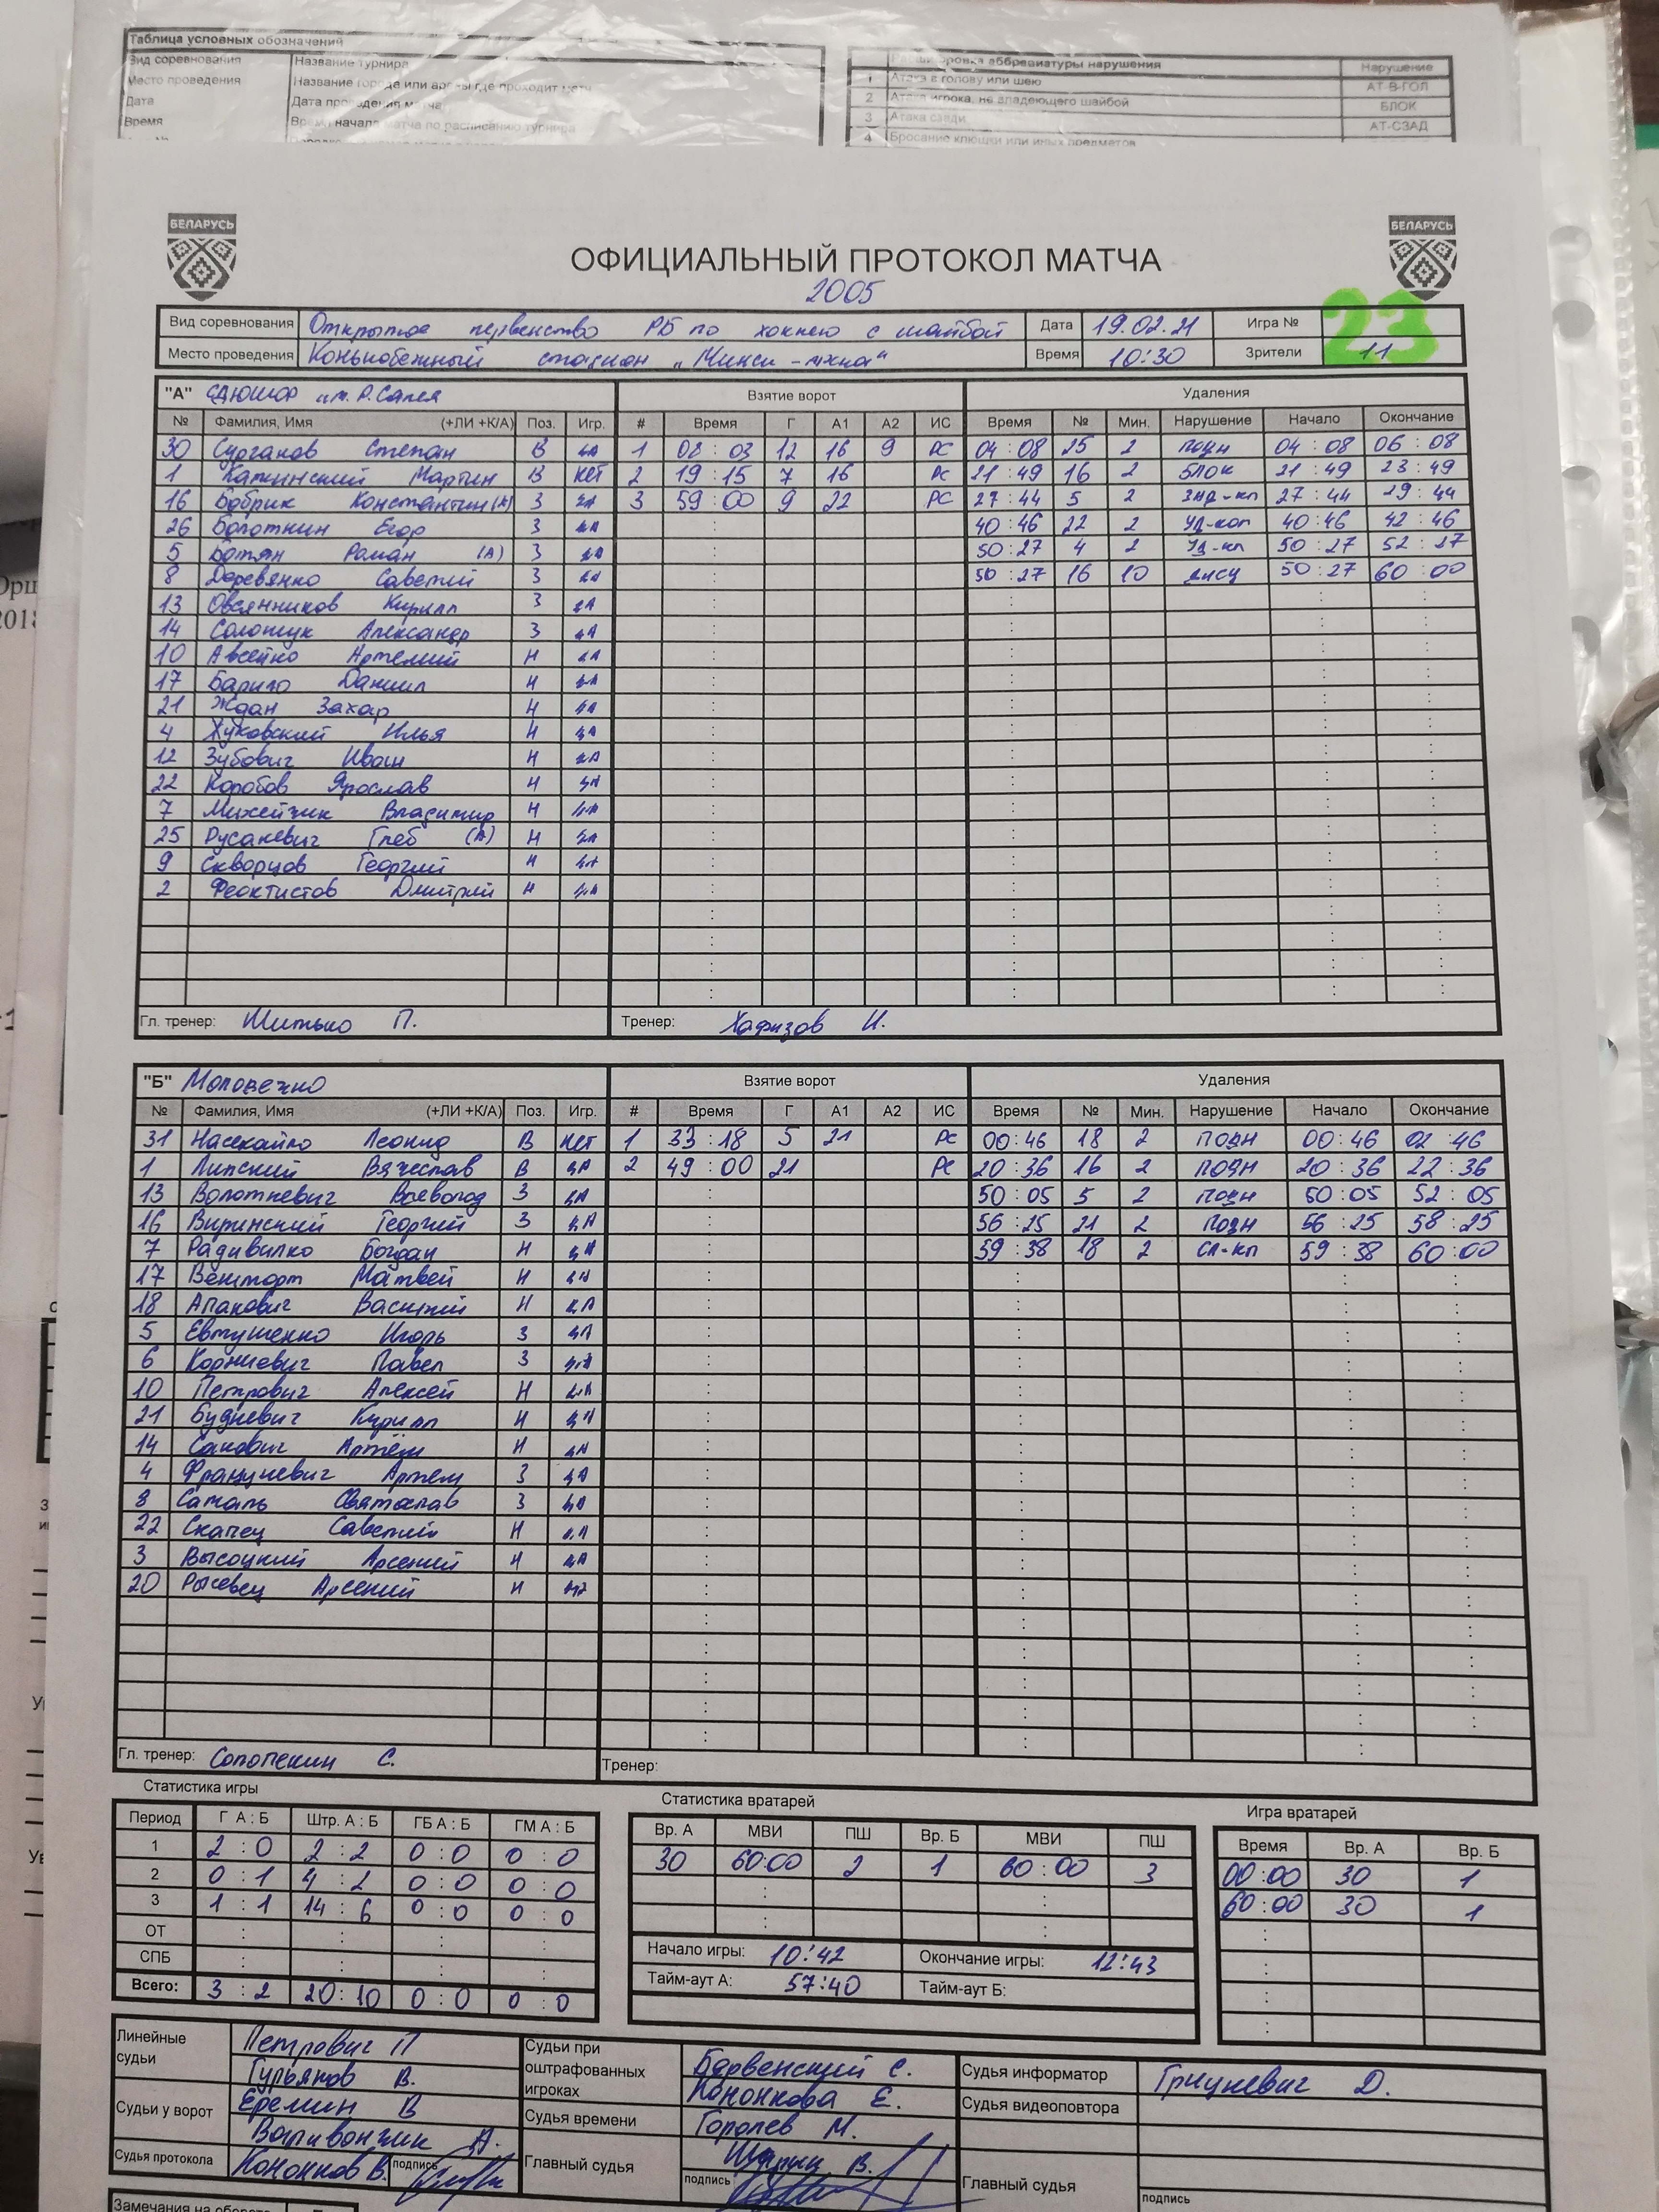 Таблица условных обозначений
Вид соревнования Название турнира
Место проведения Название города или арены где проходит матч
Дата Дата проведения матча
Время Время начала матча по расписанию турнира
Расшифровка аббревиатуры нарушения Нарушение
1 Атака в голову или шею АТ-В-ГОЛ
2 Атака игрока, не владеющего шайбой БЛОК
3 Атака сзади АТ-СЗАД
4 Бросание клюшки или иных предметов
БЕЛАРУСЬ БЕЛАРУСЬ
ОФИЦИАЛЬНЫЙ ПРОТОКОЛ МАТЧА
2005
Вид соревнования Открытое первенство РБ по хоккею с шайбой Дата 19.02.21 Игра № 23
Место проведения Конькобежный стадион „Минск-арена" Время 10:30 Зрители 11
"А" СДЮШОР им. Р.Салея Взятие ворот Удаления
№ Фамилия, Имя (+ЛИ +К/А) Поз. Игр. # Время Г А1 А2 ИС Время № Мин. Нарушение Начало Окончание
30 Сурганов Степан В ДА 1 08:03 12 16 9 РС 04:08 25 2 ПОДН 04:08 06:08
1 Мартин В НЕТ 2 19:15 7 16 РС 21:49 16 2 БЛОК 21:49 23:49
16 Бобрик Константин (А) З ДА 3 59:00 9 22 РС 27:44 5 2 ЗАД-КЛ 27:44 29:44
26 Болоткин Егор З ДА 40:46 22 2 УД-КОЛ 40:46 42:46
5 Ботян Роман (А) З ДА 50:27 4 2 УД-КЛ 50:27 52:27
8 Деревянко Савелий З ДА 50:27 16 10 ДИСЦ 50:27 60:00
13 Овсянников Кирилл З ДА
14 Солощук Александр З ДА
10 Авсейко Артемий Н ДА
17 Барило Даниил Н ДА
21 Ждан Захар Н ДА
4 Жуковский Илья Н ДА
12 Зубович Иван Н ДА
22 Коробов Ярослав Н ДА
7 Михейчик Владимир Н ДА
25 Русакевич Глеб (А) Н ДА
9 Скворцов Георгий Н ДА
2 Феоктистов Дмитрий Н ДА
Гл. тренер: Шитько П. Тренер: Хафизов И.
"Б" Молодечно Взятие ворот Удаления
№ Фамилия, Имя (+ЛИ +К/А) Поз. Игр. # Время Г А1 А2 ИС Время № Мин. Нарушение Начало Окончание
31 Насекайло Леонид В НЕТ 1 33:18 5 21 РС 00:46 18 2 ПОДН 00:46 02:46
1 Липский Вячеслав В ДА 2 49:00 21 РС 20:36 16 2 ПОДН 20:36 22:36
13 Волоткевич Всеволод З ДА 50:05 5 2 ПОДН 50:05 52:05
16 Виринский Георгий З ДА 56:25 21 2 ПОДН 56:25 58:25
7 Радивилко Богдан Н ДА 59:38 18 2 СЛ-КЛ 59:38 60:00
17 Венгторт Матвей Н ДА
18 Апанович Василий Н ДА
5 Евтушенко Игорь З ДА
6 Корниевич Павел З ДА
10 Петрович Алексей Н ДА
21 Будкевич Кирилл Н ДА
14 Санович Артём Н ДА
4 Франукевич Артем З ДА
8 Саталь Святослав З ДА
22 Скапец Савелий Н ДА
3 Высоцкий Арсений Н ДА
20 Рысевец Арсений Н ДА
Гл. тренер: Сопопекин С. Тренер:
Статистика игры Статистика вратарей Игра вратарей
Период Г А : Б Штр. А : Б ГБ А : Б ГМ А : Б Вр. А МВИ ПШ Вр. Б МВИ ПШ Время Вр. А Вр. Б
1 2:0 2:2 0:0 0:0 30 60:00 2 1 60:00 3 00:00 30 1
2 0:1 4:2 0:0 0:0 60:00 30 1
3 1:1 14:6 0:0 0:0
ОТ
СПБ Начало игры: 10:42 Окончание игры: 12:43
Всего: 3:2 20:10 0:0 0:0 Тайм-аут А: 57:40 Тайм-аут Б:
Линейные судьи Петрович П Судьи при оштрафованных игроках Барвенский С. Судья информатор Грицкевич Д.
Гурьянов В. Кононкова Е. Судья видеоповтора
Судьи у ворот Еремин В Судья времени Горолев М.
Варивончик А.
Судья протокола Кононков В. подпись Главный судья В. подпись Главный судья подпись
Замечания на обороте